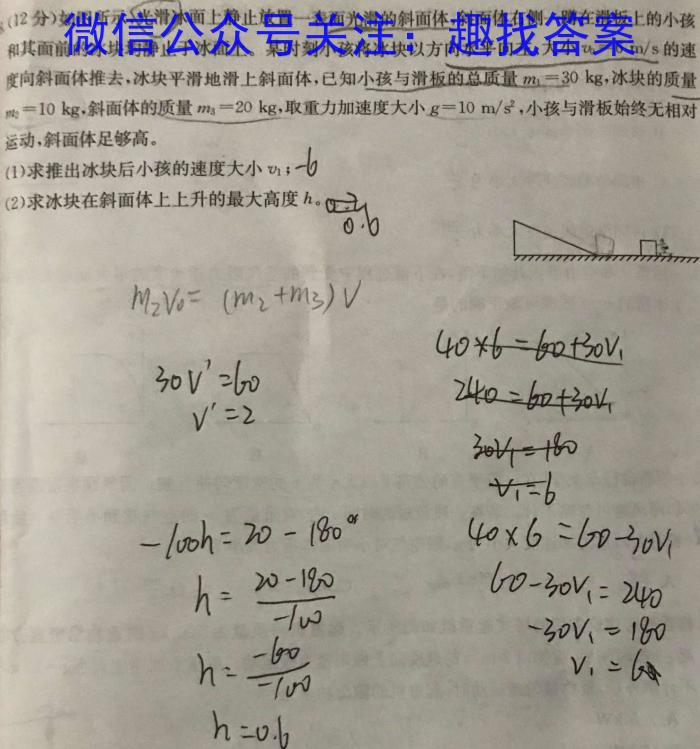 (12分)如图所示,光滑冰面上静止放置一表面光滑的斜面体,斜面体右侧一蹲在滑板上的小孩
微信公众号关注:趣找答案
和其面前的冰块均静止于冰面上。某时刻小孩将冰块以 m/s的速
度向斜面体推去,冰块平滑地滑上斜面体,已知小孩与滑板的总质量m₁=30 kg,冰块的质量
m₂=10 kg,斜面体的质量m₃=20 kg,取重力加速度大小g=10 m/s²,小孩与滑板始终无相对
运动,斜面体足够高。
(1)求推出冰块后小孩的速度大小v₁; -6
(2)求冰块在斜面体上上升的最大高度h。
0.6
m₂v₀= (m₂+m₃)V
30V'=60
V'=2
-100h=20-180
h= 20-180/-100
h= -60/-100
h=0.6
40×6=60+30V₁
240=60+30V₁
30V₁=180
V₁=6
40×6=60-30V₁
60-30V₁=240
-30V₁=180
V₁=6